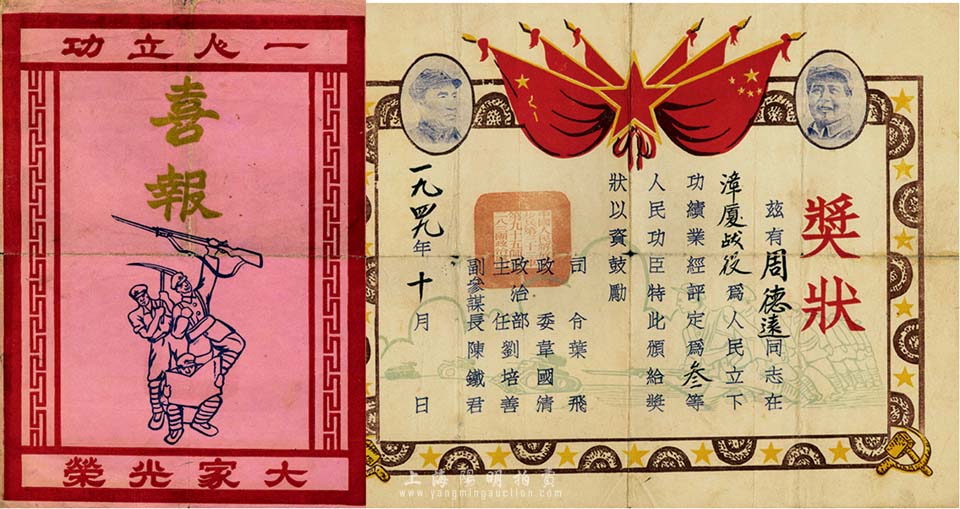 一人立功
喜報
大家光榮
獎狀
茲有周德遠同志在
漳廈战役為人民立下
功績業經評定為叁等
人民功臣特此頒給獎
狀以資鼓勵
司令葉飛
政委韋國清
政治部主任劉培善
副參謀長陳鐵君
一九四九年十月日
上海陽明拍賣
www.yangmingauction.com